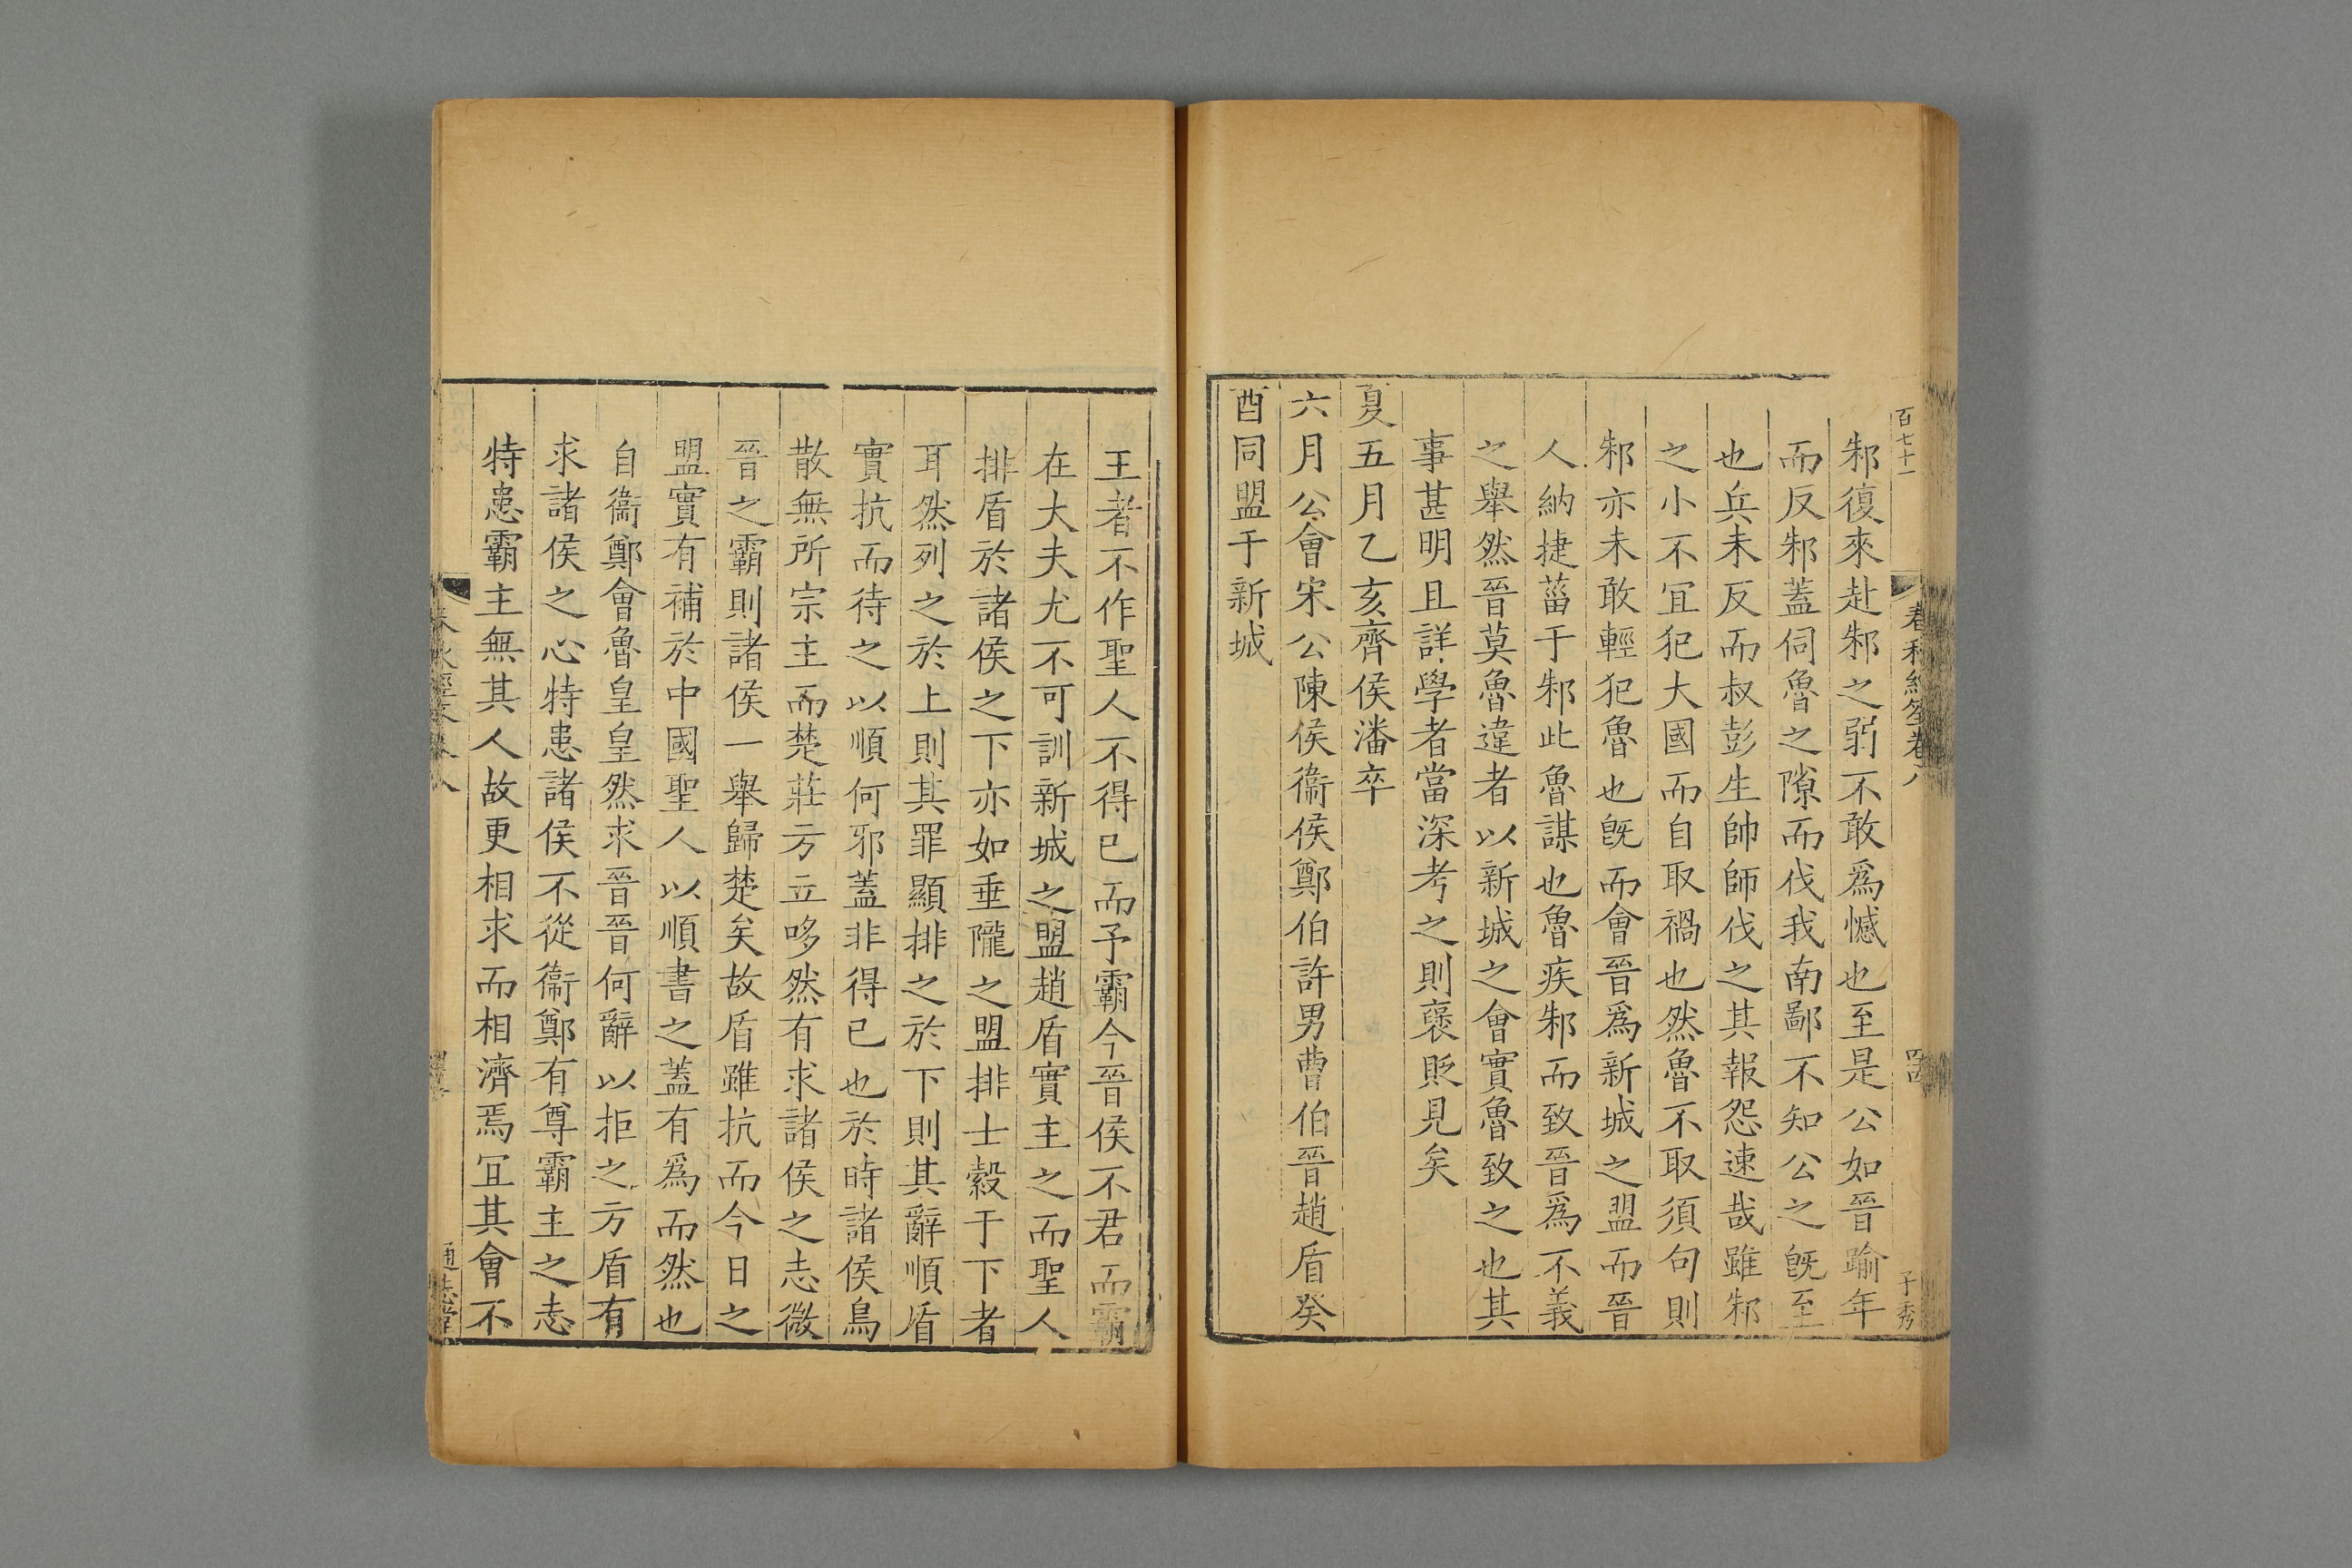 百七十一
春秋經筌卷八
四
子秀
邾復來赴邾之弱不敢爲憾也至是公如晉踰年
而反邾蓋伺魯之隙而伐我南鄙不知公之旣至
也兵未反而叔彭生帥師伐之其報怨速哉雖邾
之小不冝犯大國而自取禍也然魯不取須句則
邾亦未敢輕犯魯也旣而會晉爲新城之盟而晉
人納捷菑于邾此魯謀也魯疾邾而致晉爲不義
之舉然晉莫魯違者以新城之會實魯致之也其
事甚明且詳學者當深考之則褒貶見矣
夏五月乙亥齊侯潘卒
六月公會宋公陳侯衞侯鄭伯許男曹伯晉趙盾癸
酉同盟于新城
王者不作聖人不得已而予霸今晉侯不君而霸
在大夫尤不可訓新城之盟趙盾實主之而聖人
排盾於諸侯之下亦如垂隴之盟排士縠于下者
耳然列之於上則其罪顯排之於下則其辭順盾
實抗而待之以順何邪蓋非得已也於時諸侯鳥
散無所宗主而楚莊方立哆然有求諸侯之志微
晉之霸則諸侯一舉歸楚矣故盾雖抗而今日之
盟實有補於中國聖人以順書之蓋有爲而然也
自衞鄭會魯皇皇然求晉晉何辭以拒之方盾有
求諸侯之心特患諸侯不從衞鄭有尊霸主之志
特患霸主無其人故更相求而相濟焉冝其會不
通志堂